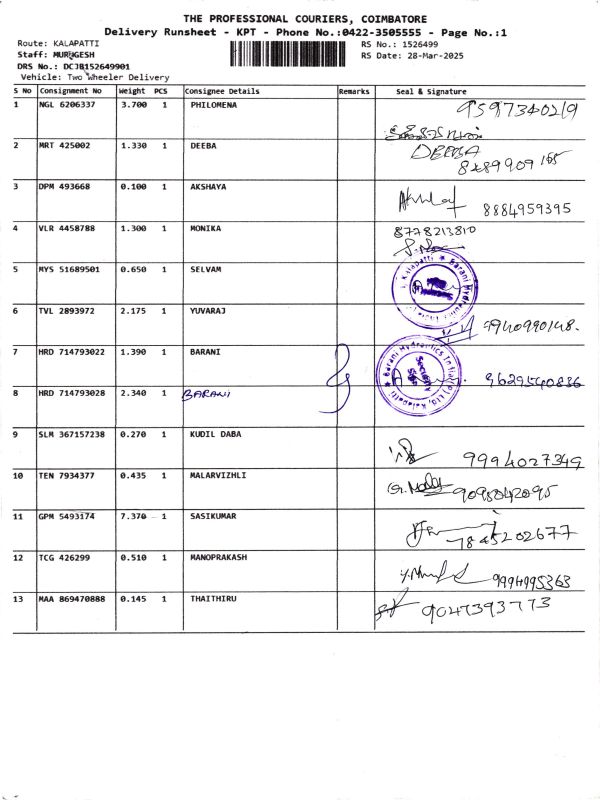 THE PROFESSIONAL COURIERS, COIMBATORE
Delivery Runsheet - KPT - Phone No.:0422-3505555 - Page No.:1
Route: KALAPATTI
RS No.: 1526499
Staff: MURUGESH
RS Date: 28-Mar-2025
DRS No.: DCJB152649901
Vehicle: Two Wheeler Delivery
S No Consignment No Weight PCS Consignee Details Remarks Seal & Signature
1 NGL 6206337 3.700 1 PHILOMENA 9597340219
2 MRT 425002 1.330 1 DEEBA DEEBA
8489909165
3 DPM 493668 0.100 1 AKSHAYA 8884959395
4 VLR 4458788 1.300 1 MONIKA 8778213810
5 MYS 51689501 0.650 1 SELVAM
6 TVL 2893972 2.175 1 YUVARAJ 9940990148.
7 HRD 714793022 1.390 1 BARANI Barani Hydraulics India (P) Ltd, Kalapatti Security 9629540836
8 HRD 714793028 2.340 1 BARANI
9 SLM 367157238 0.270 1 KUDIL DABA 9994027349
10 TEN 7934377 0.435 1 MALARVIZHLI 9095842095
11 GPM 5493174 7.370 1 SASIKUMAR 7845202677
12 TCG 426299 0.510 1 MANOPRAKASH 9994995363
13 MAA 869470888 0.145 1 THAITHIRU 9047393773